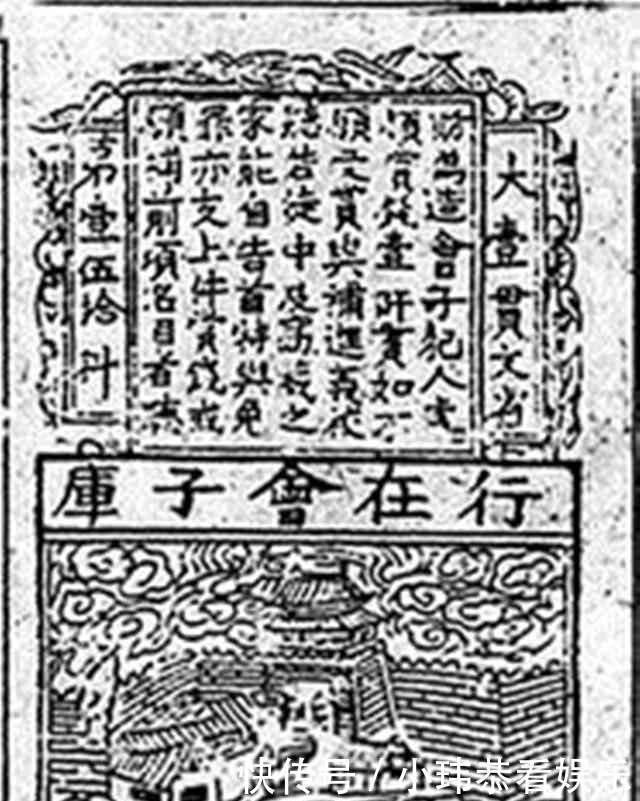 大壹貫文省
敕偽造會子犯人處
斬賞錢壹阡貫如不
願支賞與補進義校
尉若徒中及窩藏之
家能自告首特與免
罪亦支上件賞錢或
願補前項名目者聽
壹伍拾料
行在會子庫
快传号/小玮恭看娱乐